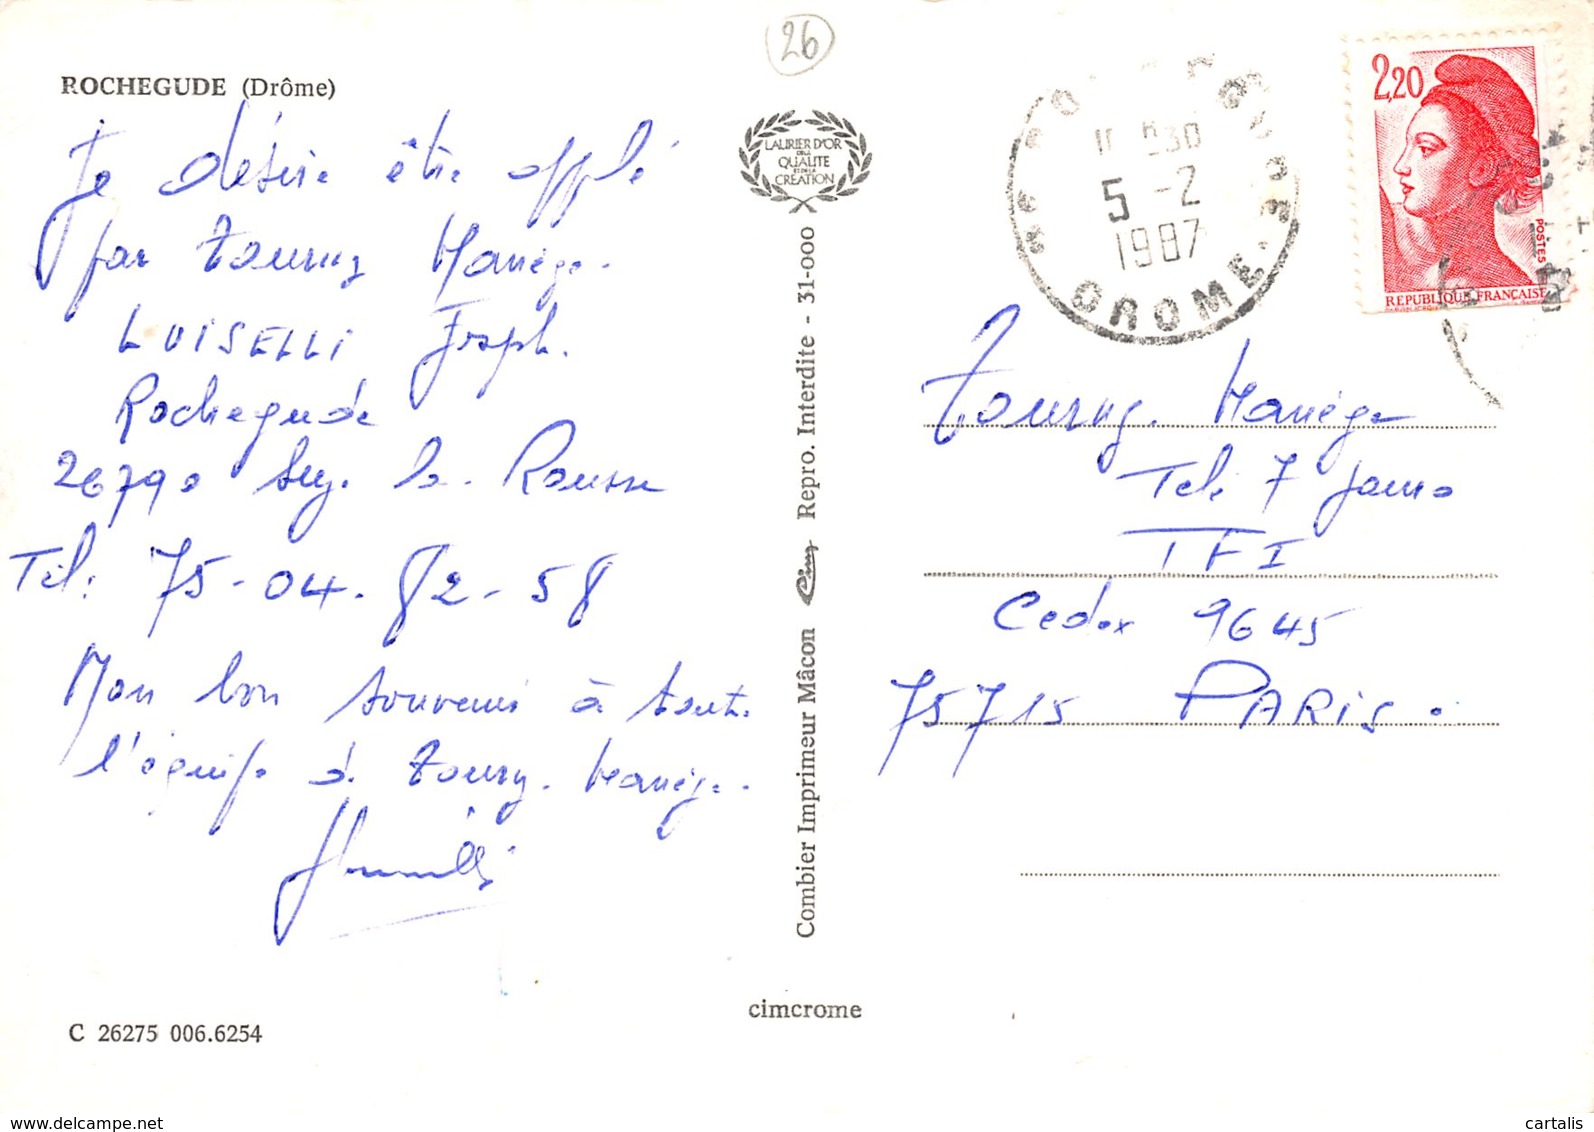 26
ROCHEGUDE (Drôme)
Je désire être applé
par Tournez Manège.
LUISELLI Joseph.
Rochegude
26790 Suze la Rousse
Tél: 75-04.82-58
Mon bon souvenir à toute
l'équipe à Tourn. Manège.
C 26275 006.6254
LAURIER D'OR
DE LA
QUALITE
ET DE LA
CREATION
Combier Imprimeur Mâcon Cim Repro. Interdite - 31-000
cimcrome
5 -2
1987
DROME
2,20
POSTES
REPUBLIQUE FRANÇAISE
Tournez. Manège
Télé 7 Jours
TFI
Cedex 9645
75715 PARIS.
www.delcampe.net
cartalis